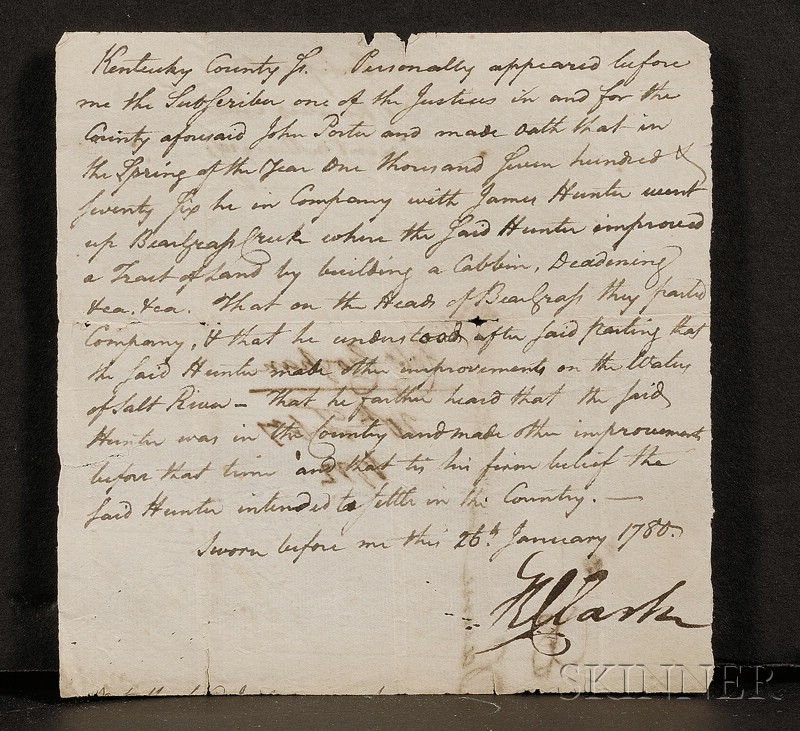 Kentucky County Ss. Personally appeared before
me the Subscriber one of the Justices in and for the
County aforesaid John Porter and made Oath that in
the Spring of the Year One thousand Seven hundred &
Seventy Six he in Company with James Hunter went
up BearGrass Creek where the Said Hunter improved
a Tract of Land by building a Cabbin, Deadening
&ca. &ca. That on the Heads of BearGrass they parted
Company, & that he understood after said Parting that
the said Hunter made other improvements on the Waters
of Salt River – that he farther heard that the Said
Hunter was in the Country and made other improvements
before that time and that tis his firm belief the
Said Hunter intended to Settle in the Country. —
Sworn before me this 26th January 1780.
GR Clark
SKINNER